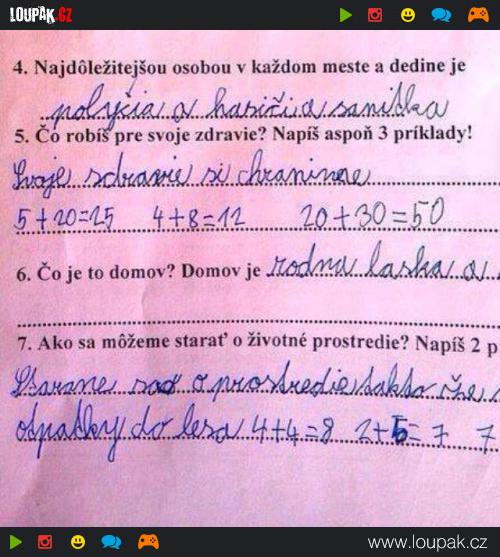 LOUPAK.CZ
4. Najdôležitejšou osobou v každom meste a dedine je
polycia a hasiči a sanitka
5. Čo robíš pre svoje zdravie? Napíš aspoň 3 príklady!
Svoje sdravie si chranime
5+20=25 4+8=12 20+30=50
6. Čo je to domov? Domov je rodna laska a
7. Ako sa môžeme starať o životné prostredie? Napíš 2 p
Starame o prostredie takto že
odpatky do lesa 4+4=8 2+5=7 7
www.loupak.cz